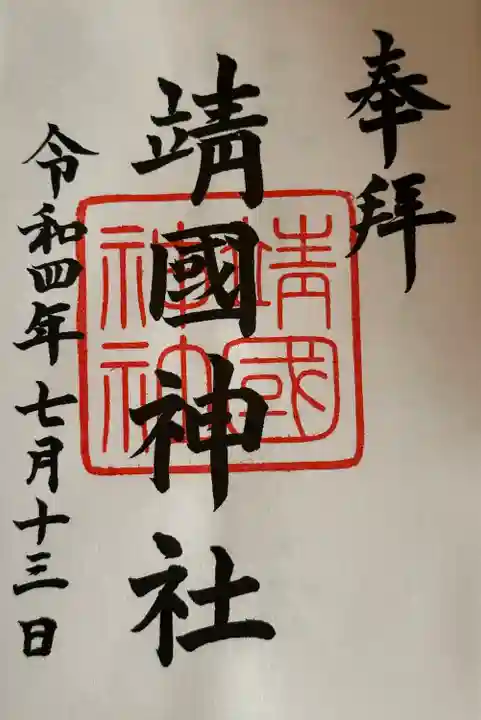 奉拝
靖國神社
靖國神社
令和四年七月十三日